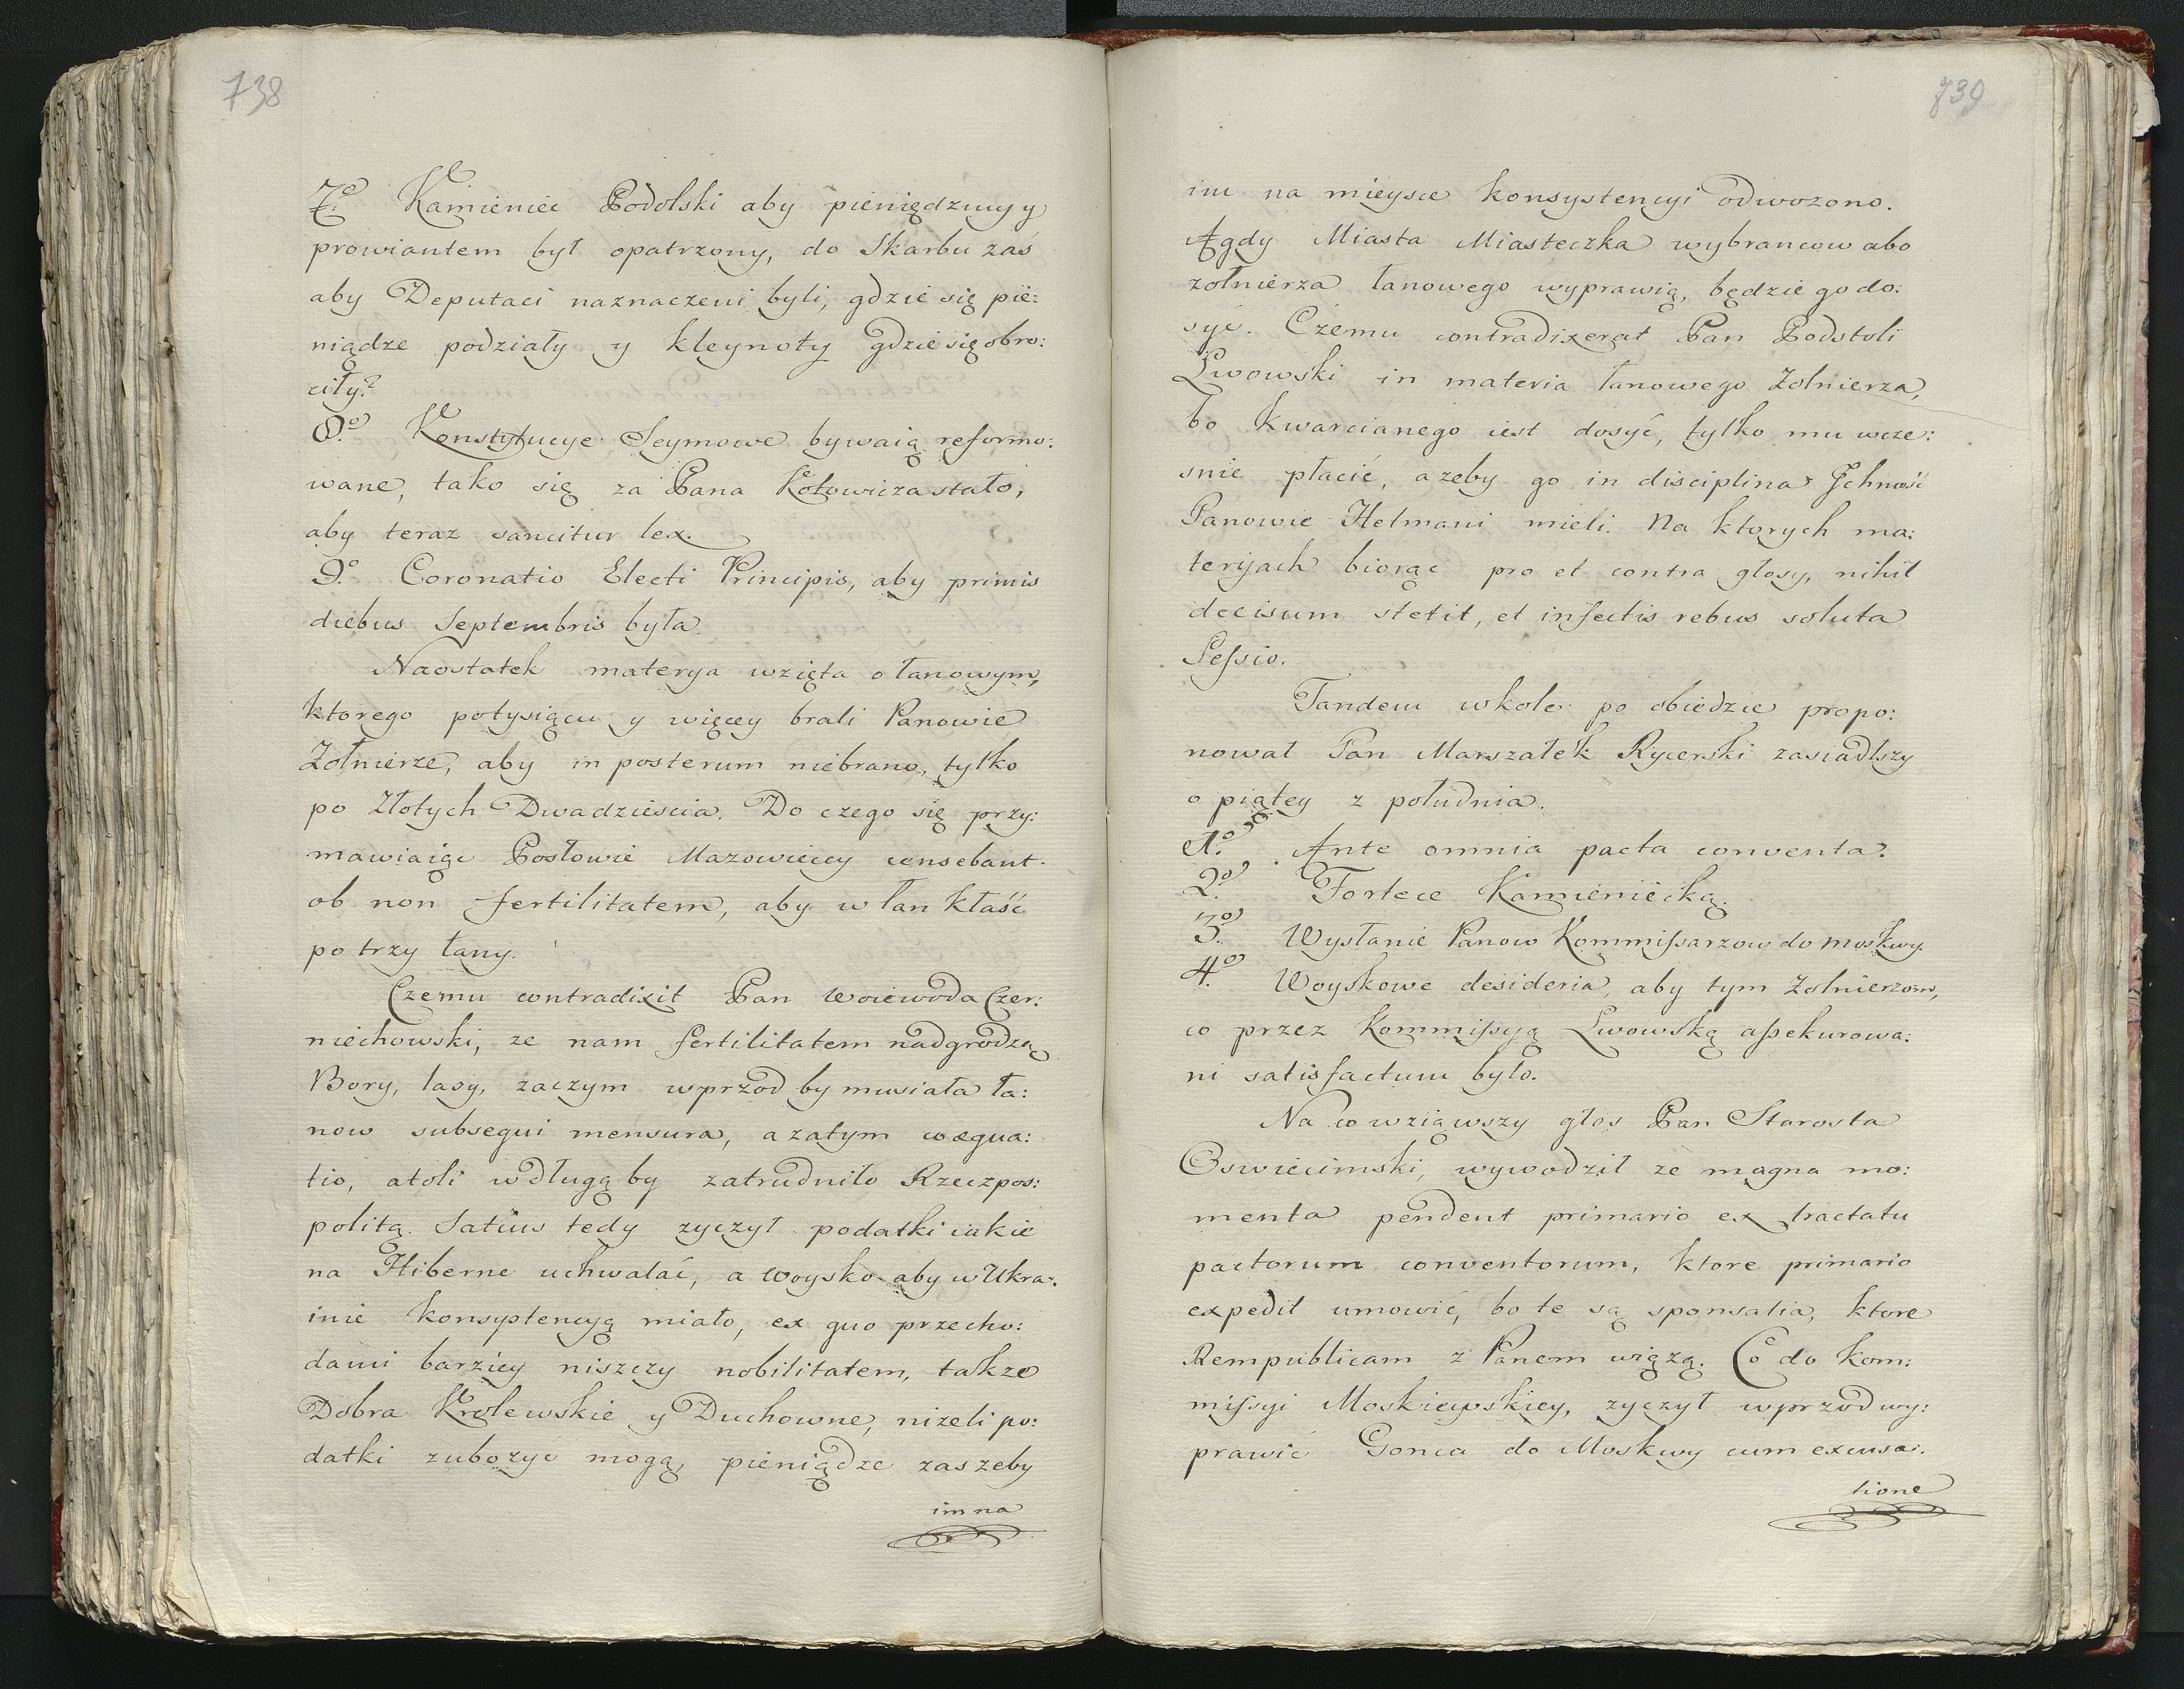 738
7.º Kamieniec Podolski aby pieniędzmy y
prowiantem był opatrzony, do Skarbu zaś
aby Deputaci naznaczeni byli, gdzie się pie:
niądze podziały y kleynoty gdzie się obro:
ciły?
8.º Konstytucye Seymowe bywaią reformo:
wane, tako się za Pana Kotowicza stało,
aby teraz sancitur lex.
9.º Coronatio Electi Principis, aby primis
diebus Septembris była.
Naostatek materya wzięta o łanowym,
ktorego potysiącu y więcey brali Panowie
Żołnierze, aby in posterum niebrano, tylko
po Złotych Dwadzieścia. Do czego się przy:
mawiaiąc Posłowie Mazowieccy censebant
ob non fertilitatem, aby w łan kłaść
po trzy łany.
Czemu contradixit Pan Woiewoda Czer:
niechowski, ze nam fertilitatem nadgrodzą
Bory, lasy, zaczym wprzod by musiała ła:
now subsequi mensura, a zatym coæqua:
tio, atoli w długą by zatrudniło Rzeczpos:
politą. Satius tedy zyczył podatki iakie
na Hiberne uchwalać, a Woysko aby w Ukra:
inie konsystencyą miało, ex quo przecho:
dami barziey niszczy nobilitatem, takze
Dobra Krolewskie y Duchowne, nizeli po:
datki zubozyc mogą, pieniądze zas zeby
im na
739
im na mieysce konsystencyi odwozono.
A gdy Miasta Miasteczka wybrancow abo
zołnierza łanowego wyprawią, będzie go do:
syć. Czemu contradixerat Pan Podstoli
Lwowski in materia łanowego Zołnierza,
bo kwarcianego iest dosyć, tylko mu wcze:
snie płacić, a zeby go in disciplina Jchmość
Panowie Hetmani mieli. Na ktorych ma:
teryjach biorąc pro et contra głosy, nihil
decisum stetit, et infectis rebus soluta
Sessio.
Tandem w kole po obiedzie propo:
nował Pan Marszałek Rycerski zasiadłszy
o piątey z południa.
1.º Ante omnia pacta conventa.
2.º Fortece Kamieniecką.
3.º Wysłanie Panow Kommissarzow do Moskwy.
4.º Woyskowe desideria, aby tym Zołnierzom,
co przez Kommissyą Lwowską assekurowa:
ni satisfactum było.
Na co wziąwszy głos Pan Starosta
Oswiecimski, wywodził ze magna mo:
menta pendent primario ex tractatu
pactorum conventorum, ktore primario
expedit umowić, bo te są sponsalia, ktore
Rempublicam z Panem wiązą. Co do kom:
missyi Moskiewskiey, zyczył wprzod wy:
prawić Gonca do Moskwy cum excusa:
tione